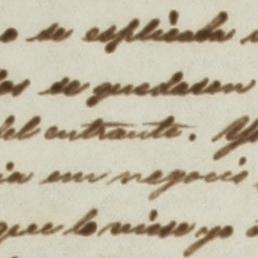 o se esplicaba
los se quedasen
del entrante. Yo
ia em negocio
que lo viese yo